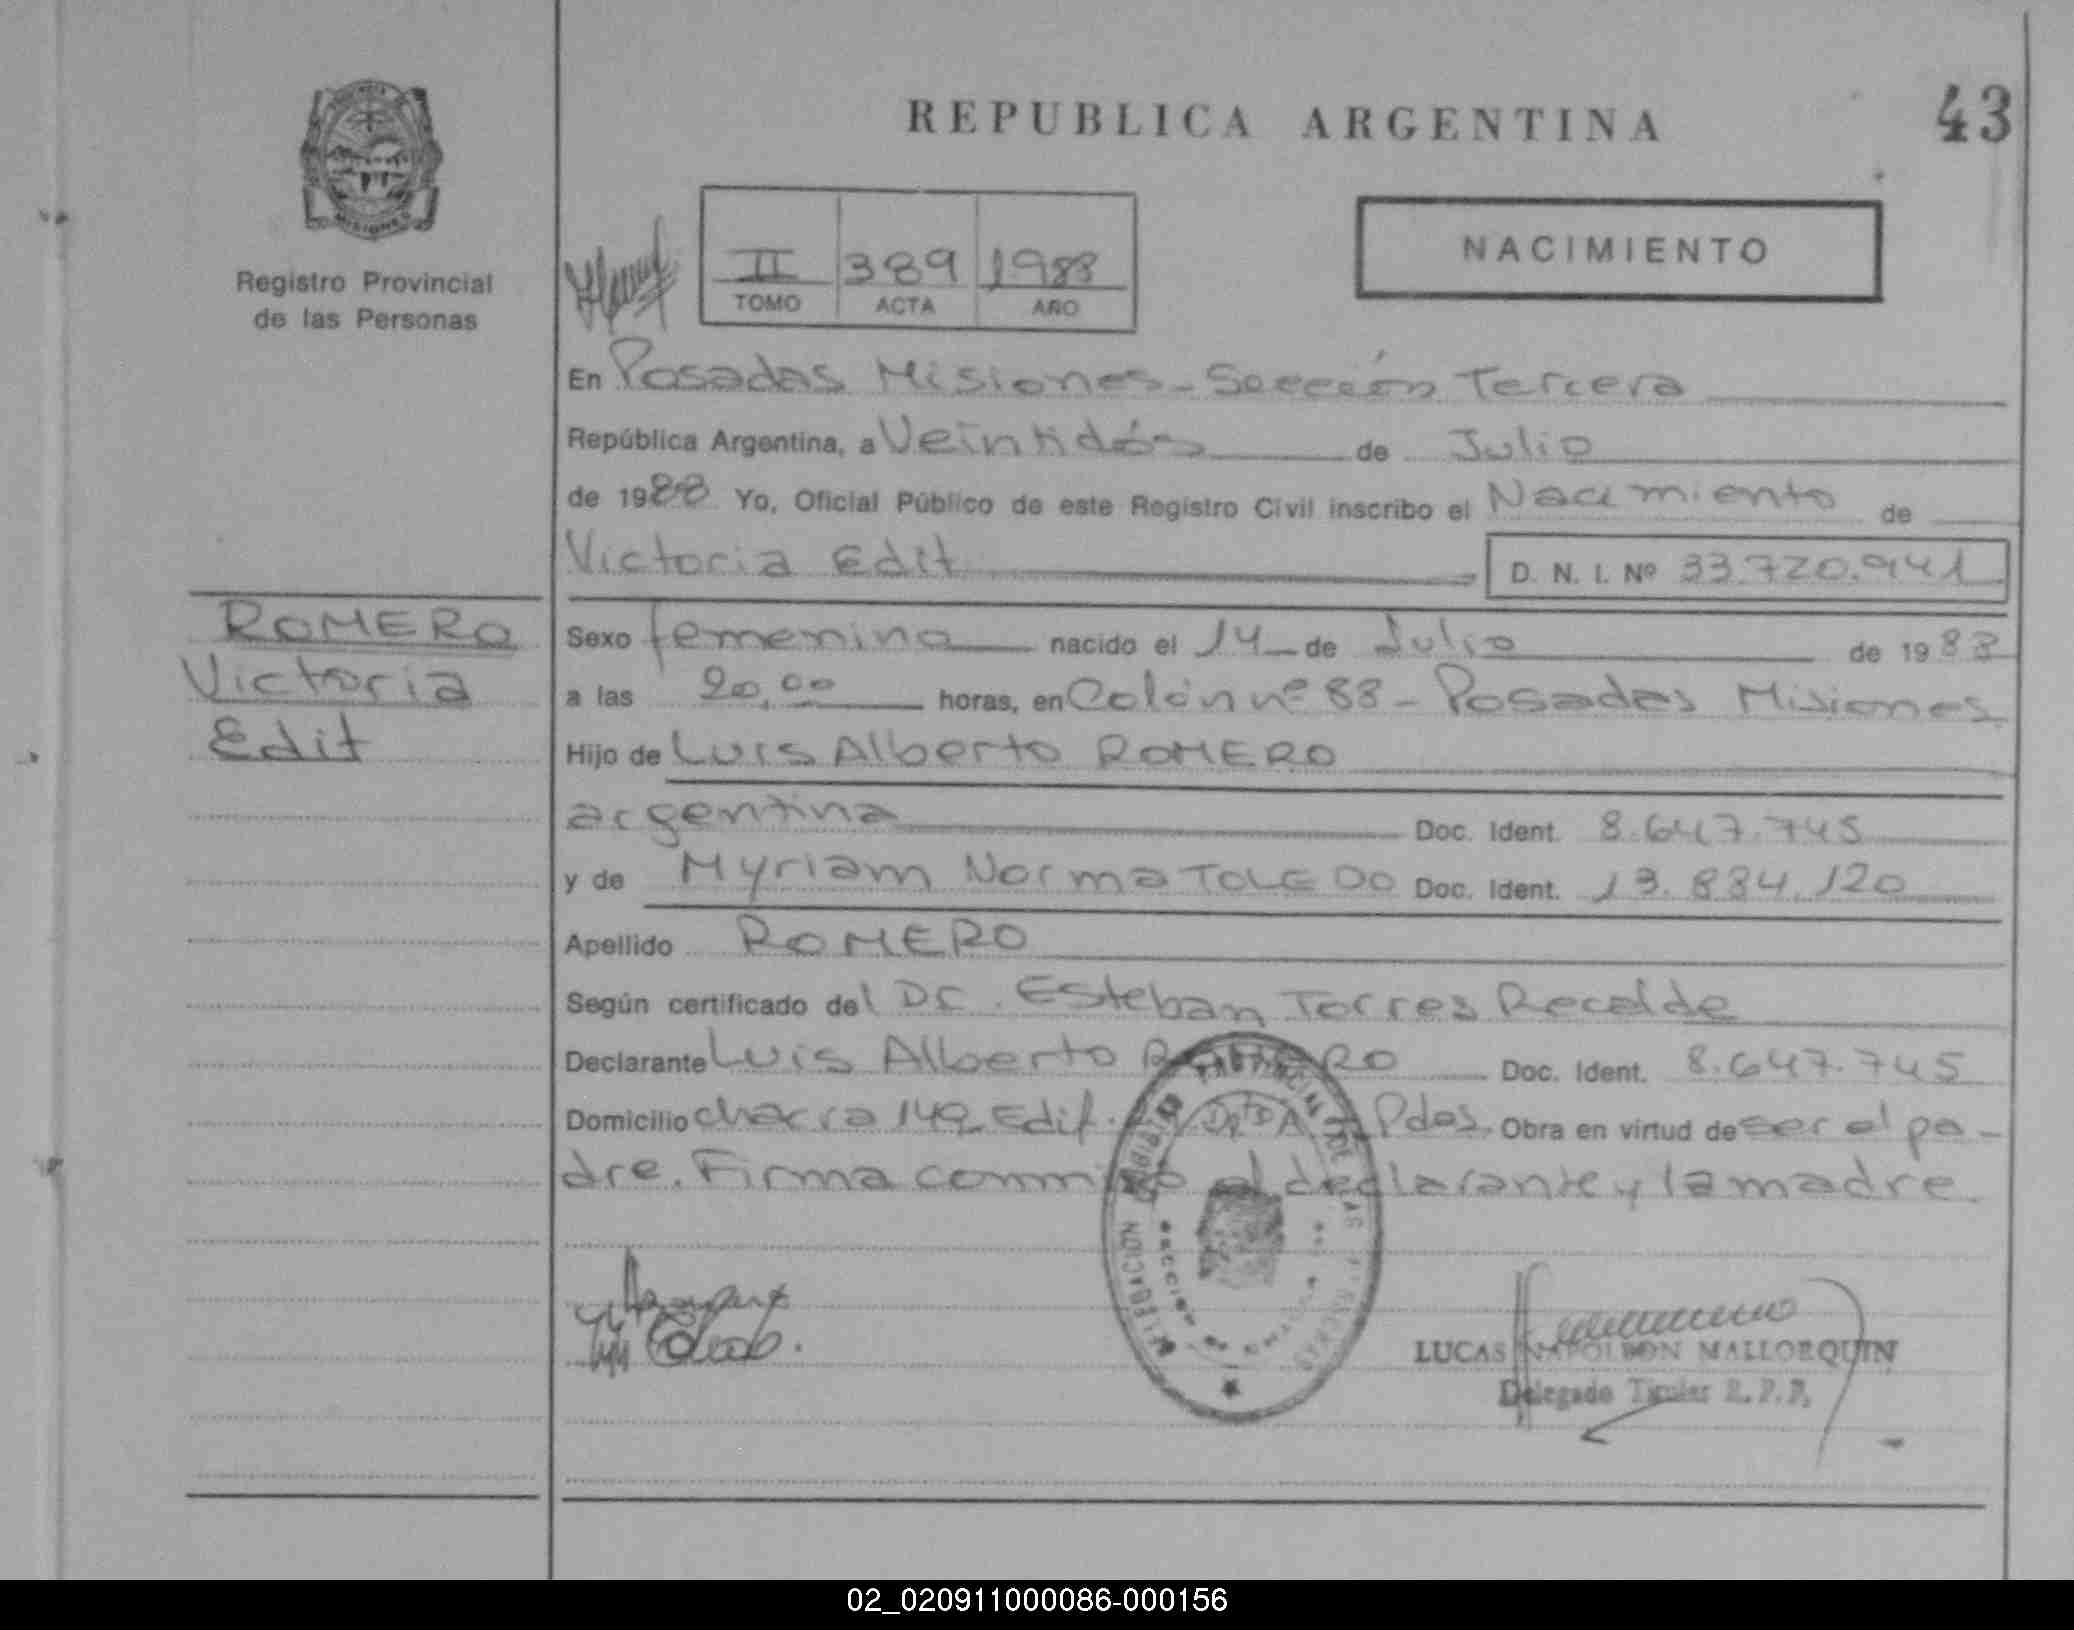 REPUBLICA ARGENTINA
43
PROVINCIA DE MISIONES
Registro Provincial
de las Personas
NACIMIENTO
II 389 1988
TOMO ACTA AÑO
En Posadas Misiones - Sección Tercera
República Argentina, a Veintidós de Julio
de 1988 Yo, Oficial Público de este Registro Civil inscribo el Nacimiento de
Victoria Edit D. N. I. Nº 33.720.941
ROMERO
Victoria
Edit
Sexo femenino nacido el 14 de Julio de 1988
a las 20,00 horas, en Colón nº 88 - Posadas Misiones
Hijo de Luis Alberto ROMERO
argentina Doc. Ident. 8.647.745
y de Myriam Norma TOLEDO Doc. Ident. 13.884.120
Apellido ROMERO
Según certificado del Dr. Esteban Torres Recalde
Declarante Luis Alberto ROMERO Doc. Ident. 8.647.745
Domicilio chacra 149 Edif. Dpto A. Pdas. Obra en virtud de ser el pa-
dre. Firma conmigo el declarante y la madre.
LUCAS NAPOLEON MALLORQUIN
Delegado Titular R.P.P.
02_020911000086-000156